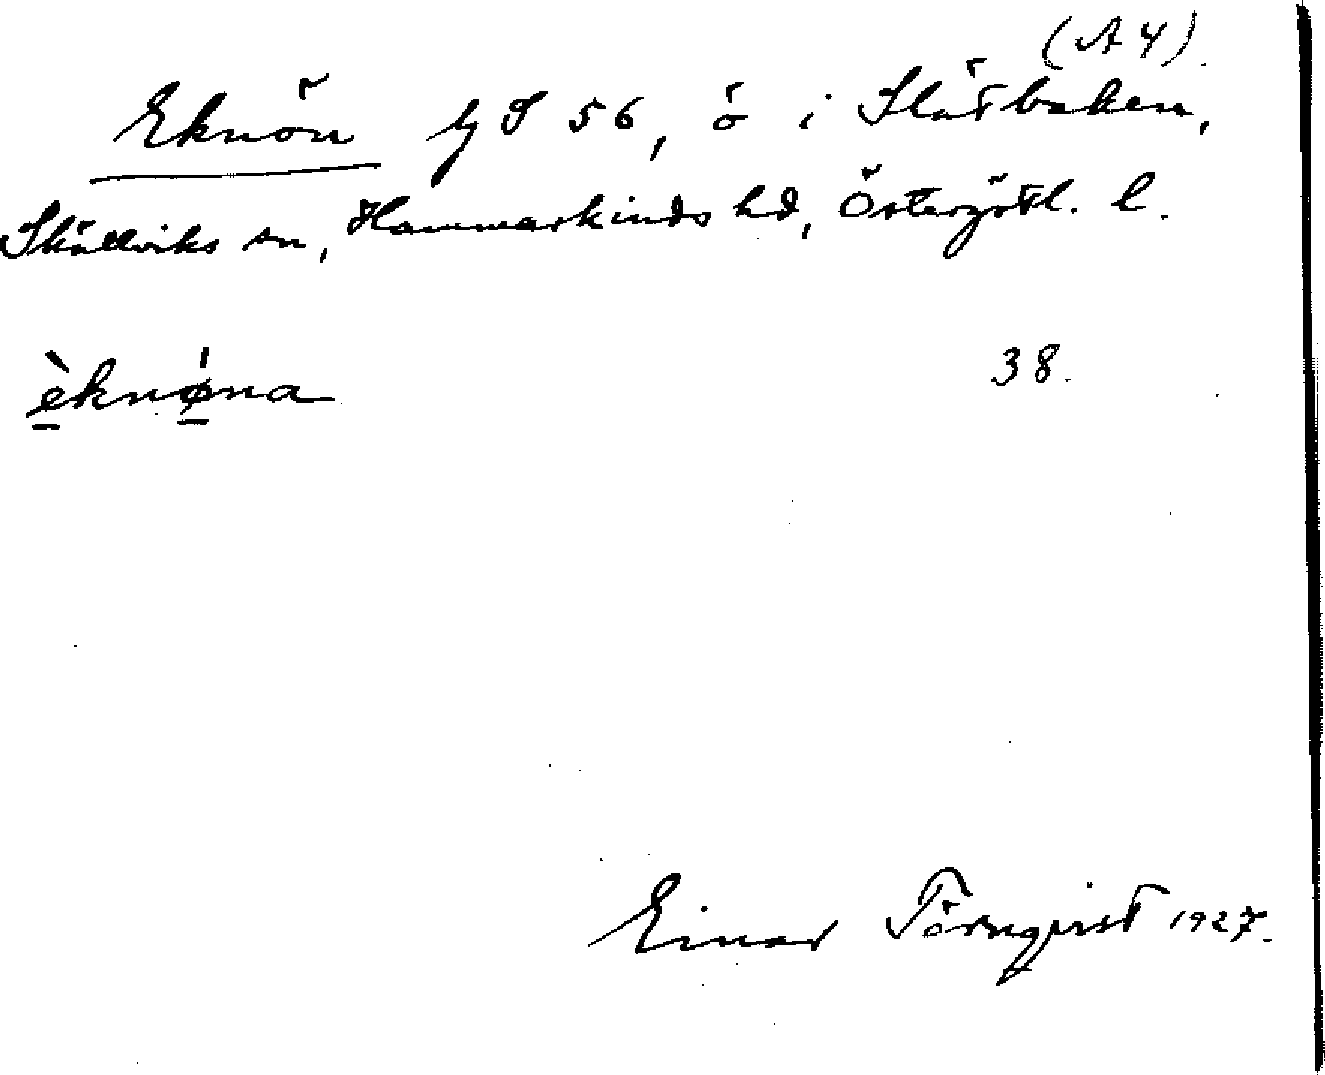 (A 4).
Eknön G S 56, ö i Slätbaken,
Skällviks sn, Hammarkinds hd, Östergötl. l.
èknø̀na 38.
Einar Törnqvist 1927.